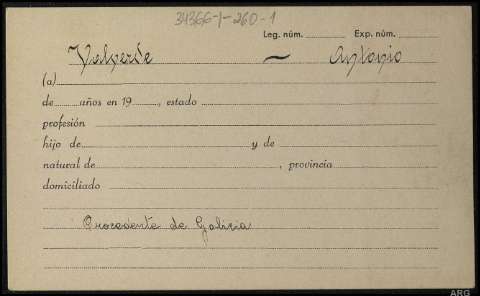 34366-1-260-1
Leg. núm. Exp. núm.
Valverde — Antonio
(a)
de años en 19 , estado
profesión
hijo de y de
natural de , provincia
domiciliado
Procedente de Galicia
ARG